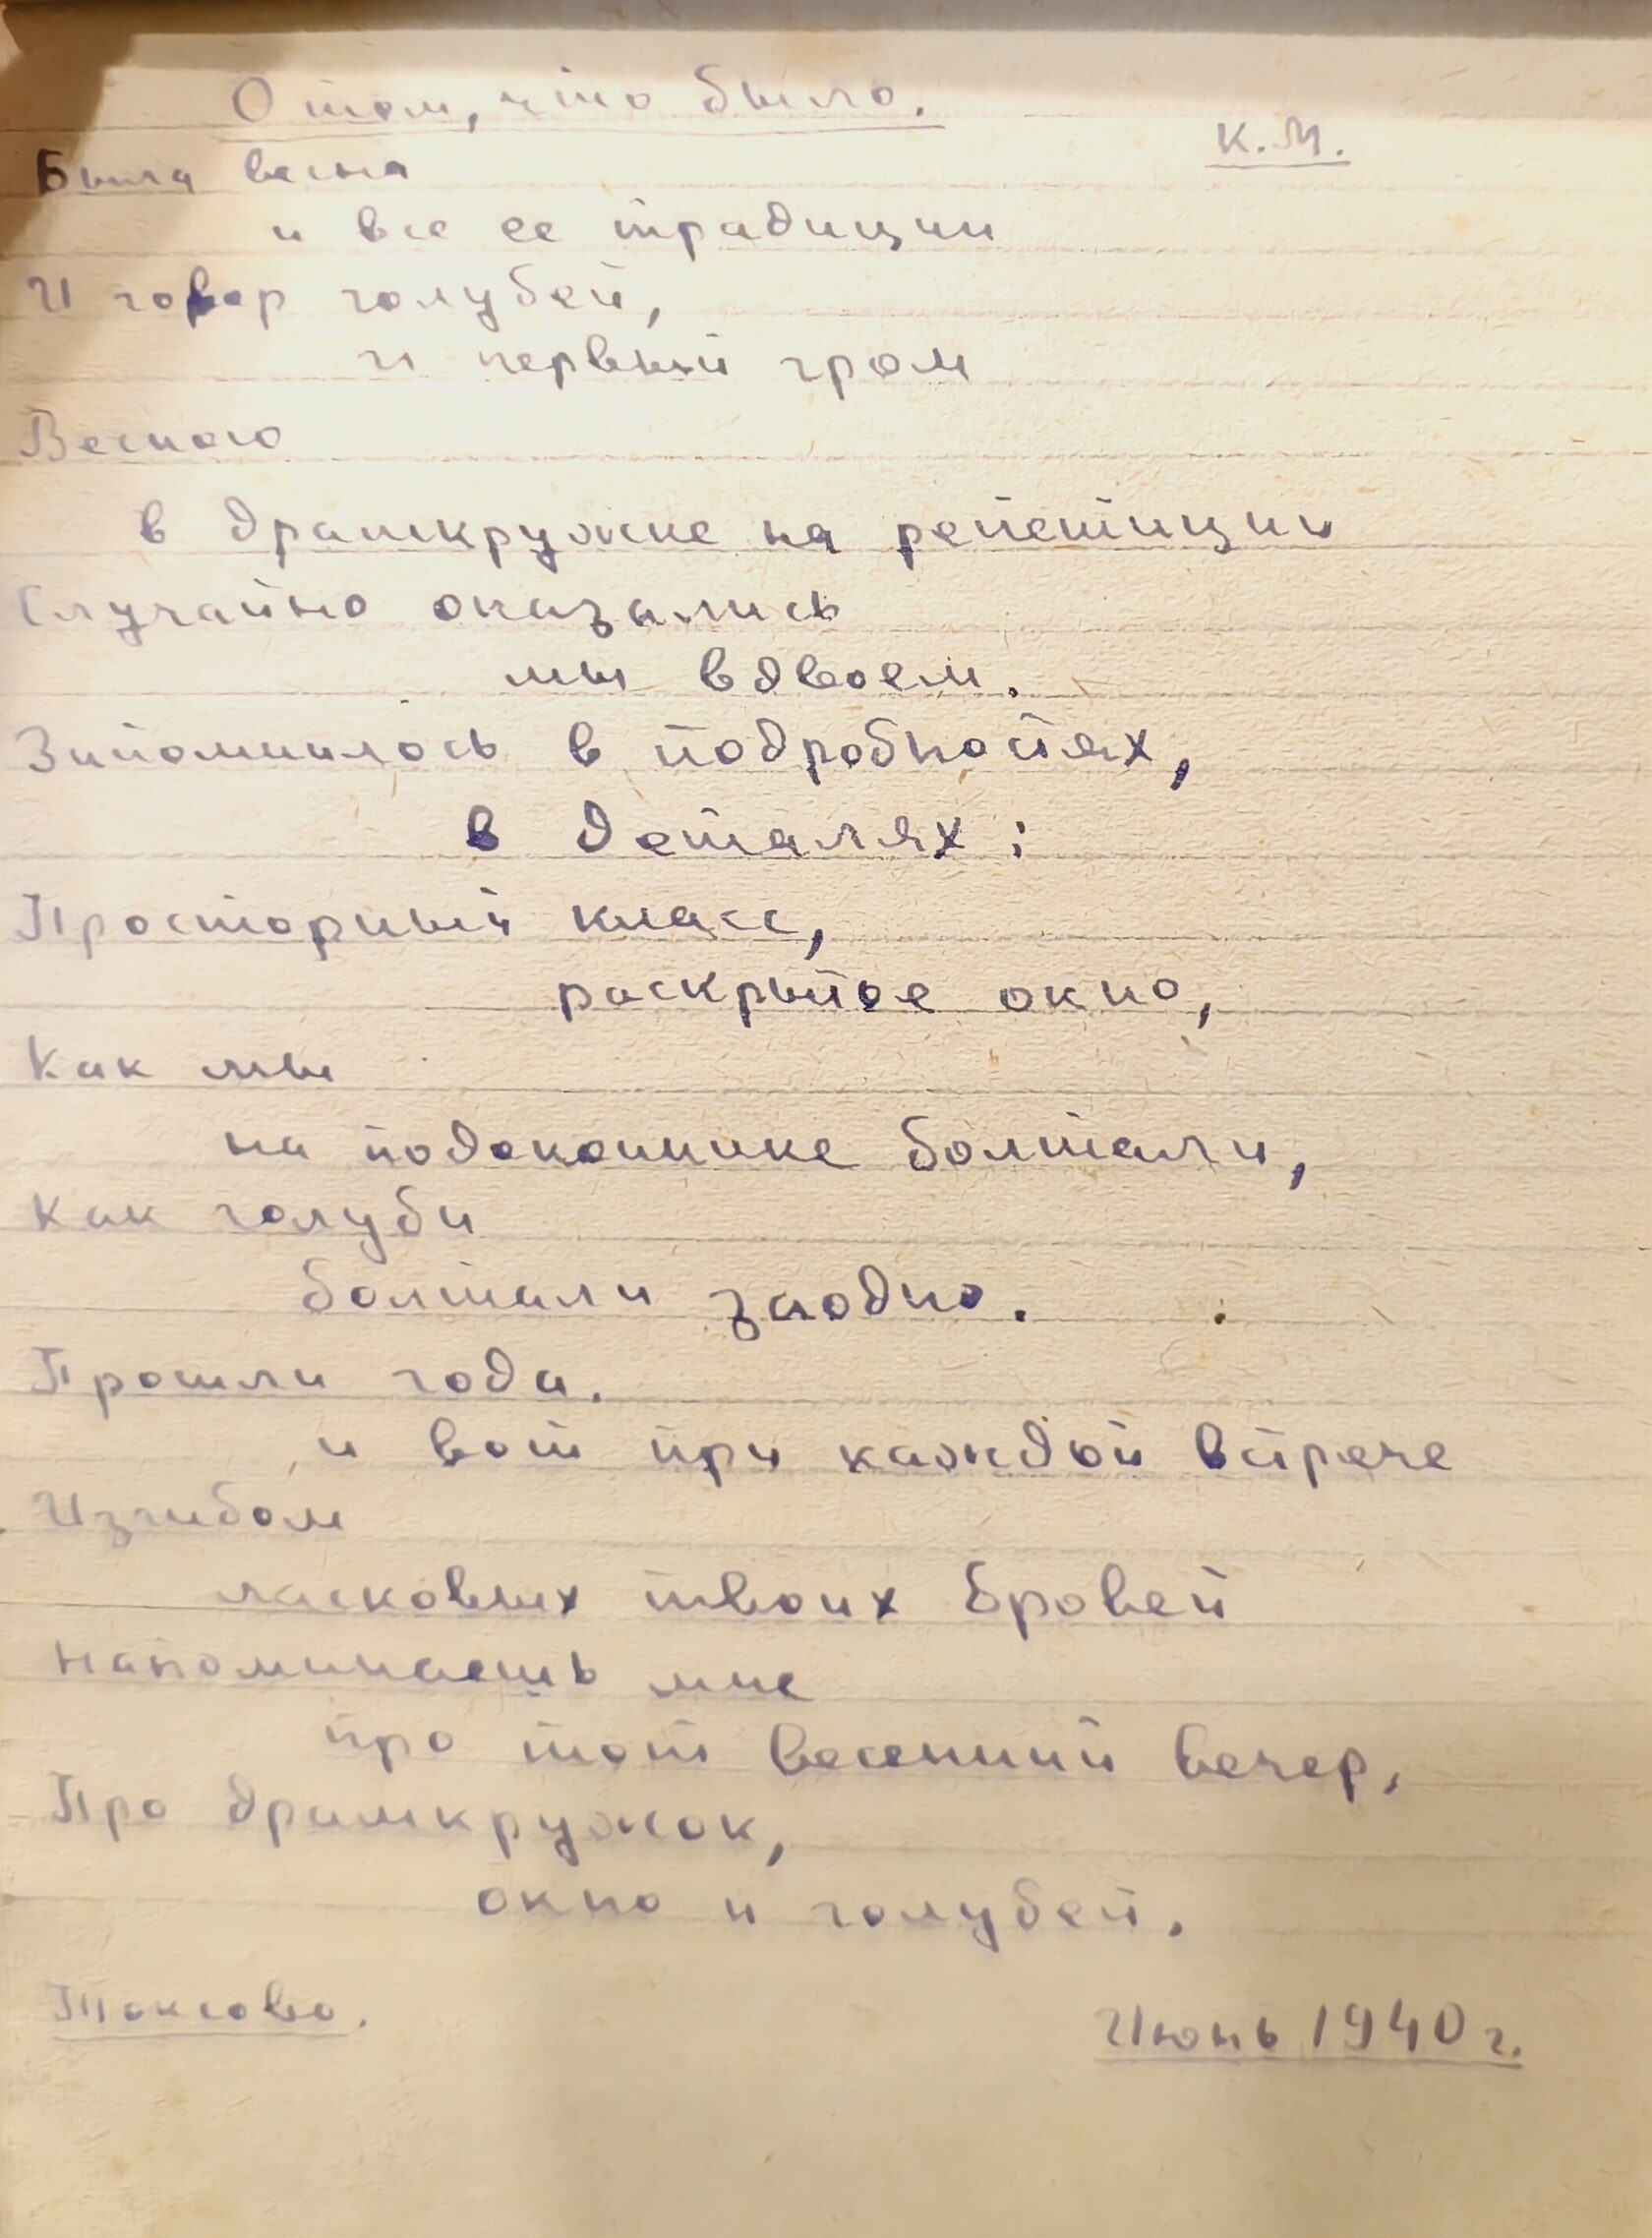 О том, что было.
К.М.
Была весна
и все ее традиции
И говор голубей,
и первый гром
Весною
в драмкружке на репетиции
Случайно оказались
мы вдвоем.
Запомнилось в подробностях,
в деталях:
Просторный класс,
раскрытое окно,
Как мы
на подоконнике болтали,
Как голуби
болтали заодно.
Прошли года.
и вот при каждой встрече
Изгибом
ласковых твоих бровей
напоминаешь мне
про тот весенний вечер,
Про драмкружок,
окно и голубей.
Токсово.
Июнь 1940 г.